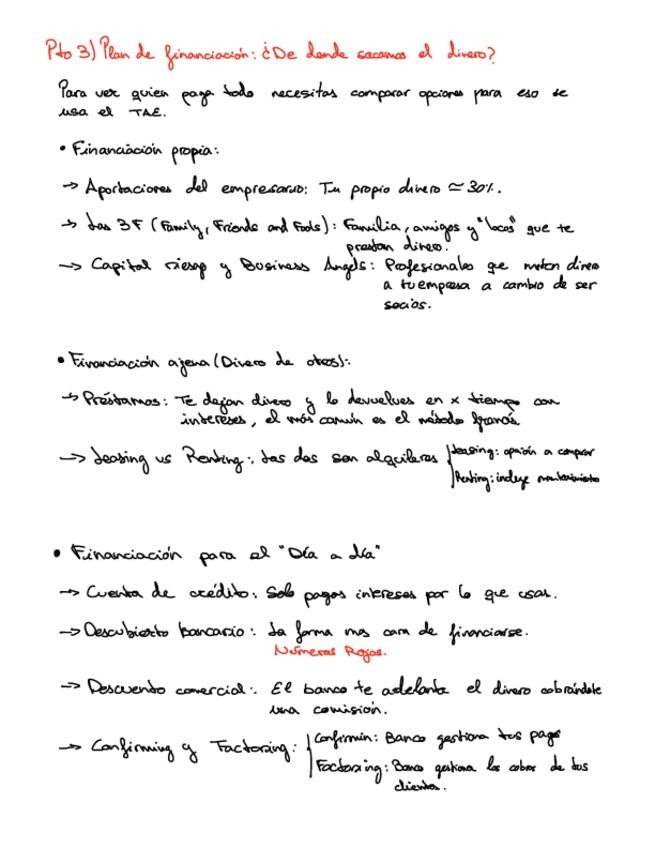 Pto 3) Plan de financiación: ¿De donde sacamos el dinero?
Para ver quien paga todo necesitas comparar opciones para eso se
usa el TAE.
• Financiación propia:
→ Aportaciones del empresario: Tu propio dinero ≃ 30%.
→ Las 3F (Family, Friends and Fools): Familia, amigos y "locos" que te
prestan dinero.
→ Capital riesgo y Business Angels: Profesionales que meten dinero
a tu empresa a cambio de ser
socios.
• Financiación ajena (Dinero de otros):
→ Préstamos: Te dejan dinero y lo devuelves en x tiempo con
intereses, el más común es el método francés.
→ Leasing vs Renting: Las dos son alquileres
Leasing: opción a comprar
Renting: incluye mantenimiento
• Financiación para el "Día a día"
→ Cuenta de crédito: Solo pagas intereses por lo que usas.
→ Descubierto bancario: La forma mas cara de financiarse.
Números Rojos.
→ Descuento comercial: El banco te adelanta el dinero cobrándote
una comisión.
→ Confirming y Factoring:
Confirmin: Banco gestiona tus pagos
Factoring: Banco gestiona los cobros de tus
clientes.